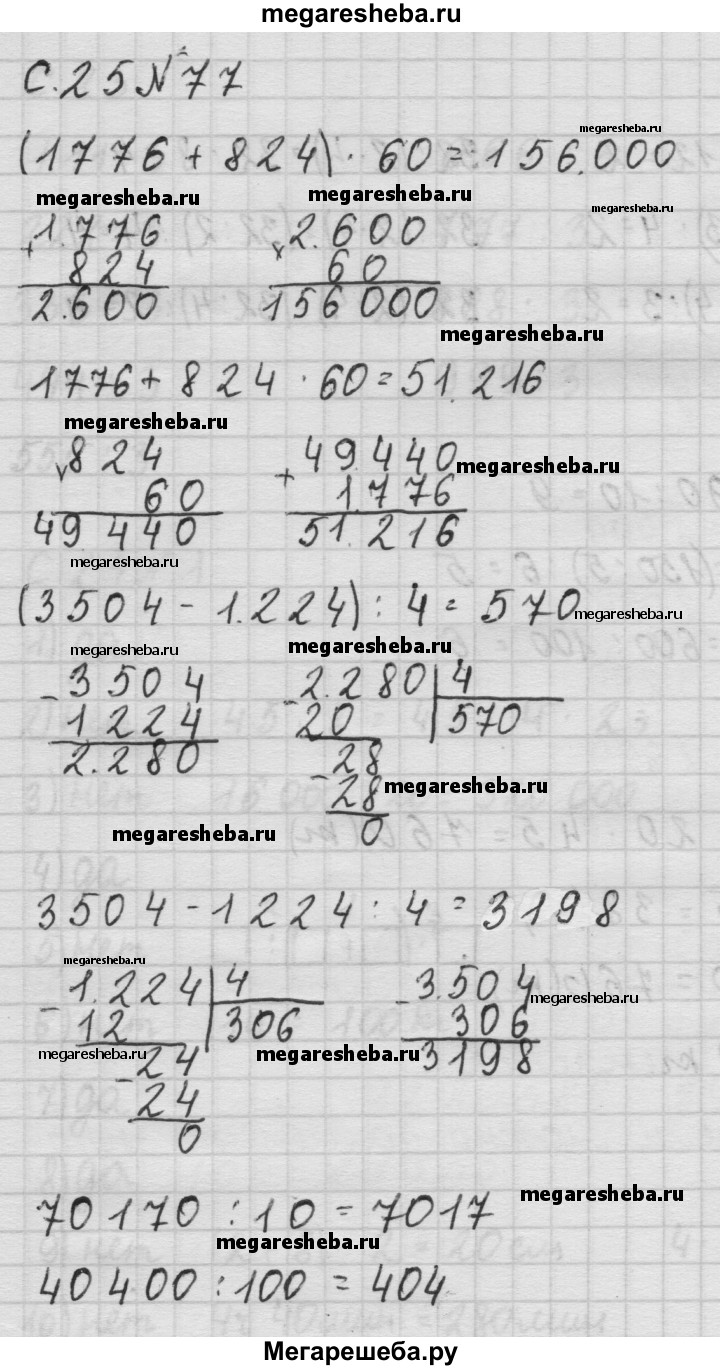 megaresheba.ru
С.25 №77
megaresheba.ru
(1776 + 824) · 60 = 156.000
megaresheba.ru megaresheba.ru megaresheba.ru
+ 1.776 × 2.600
824 60
2.600 156000
megaresheba.ru
1776 + 824 · 60 = 51.216
megaresheba.ru
× 824 + 49.440 megaresheba.ru
60 1.776
49 440 51.216
megaresheba.ru megaresheba.ru
(3504 - 1.224) : 4 = 570 megaresheba.ru
megaresheba.ru megaresheba.ru
- 3504 - 2.280 4
1224 20 570
2.280 - 28
28 megaresheba.ru
megaresheba.ru 0
3504 - 1224 : 4 = 3198
megaresheba.ru
- 1.224 4 - 3.504 megaresheba.ru
12 306 306
megaresheba.ru - 24 megaresheba.ru 3198
24
0
70170 : 10 = 7017 megaresheba.ru
megaresheba.ru
40400 : 100 = 404
Мегарешеба.ру